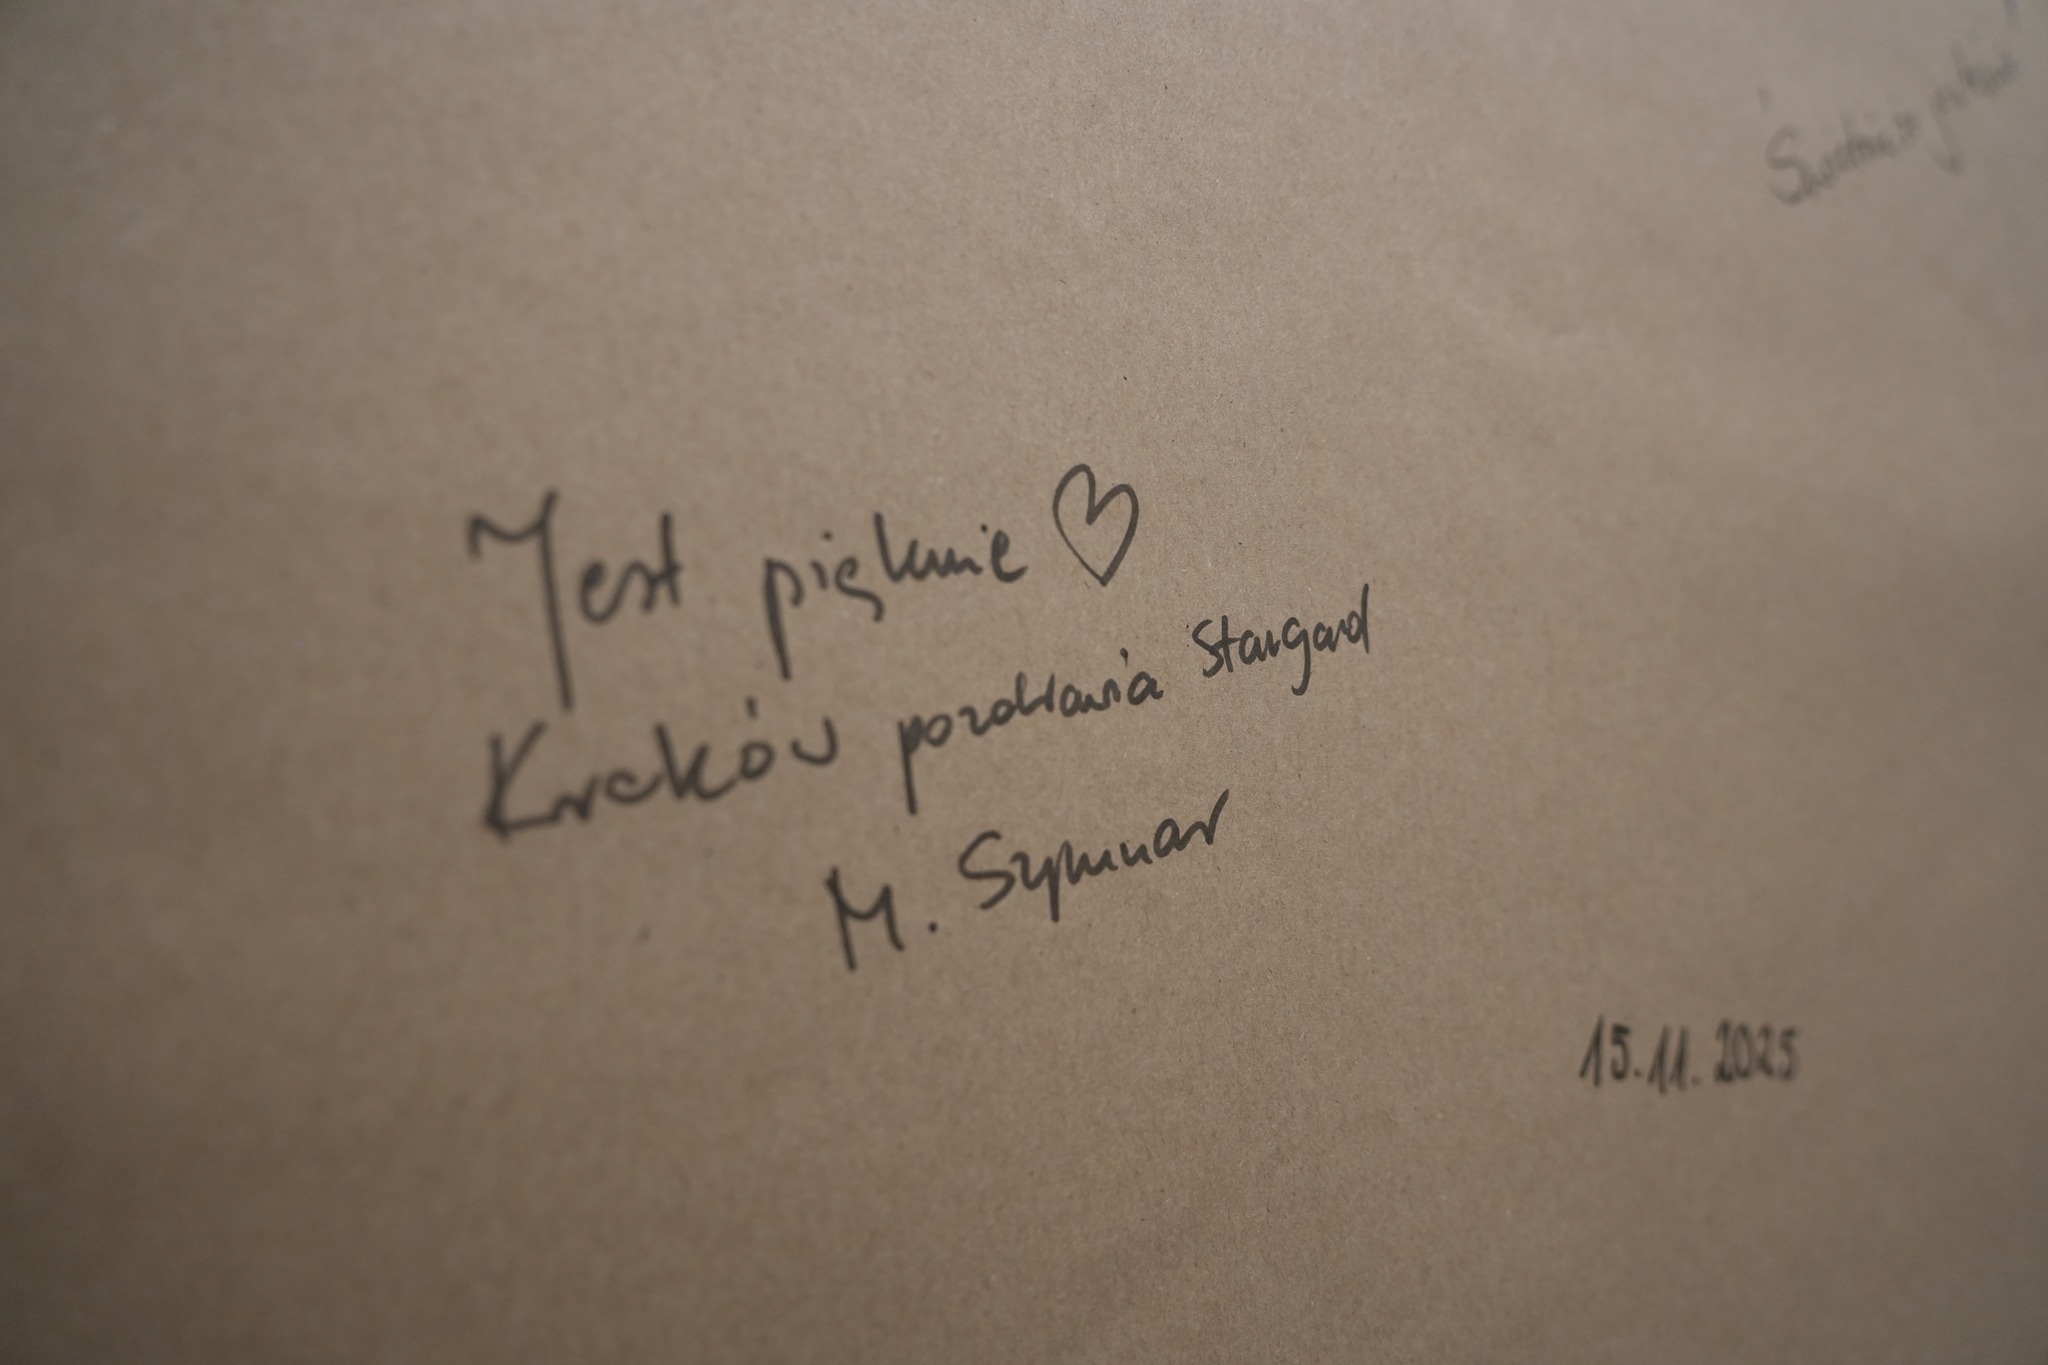 Jest pięknie ♡
Kraków pozdrawia Stargard
M. Szymnar
15.11.2025